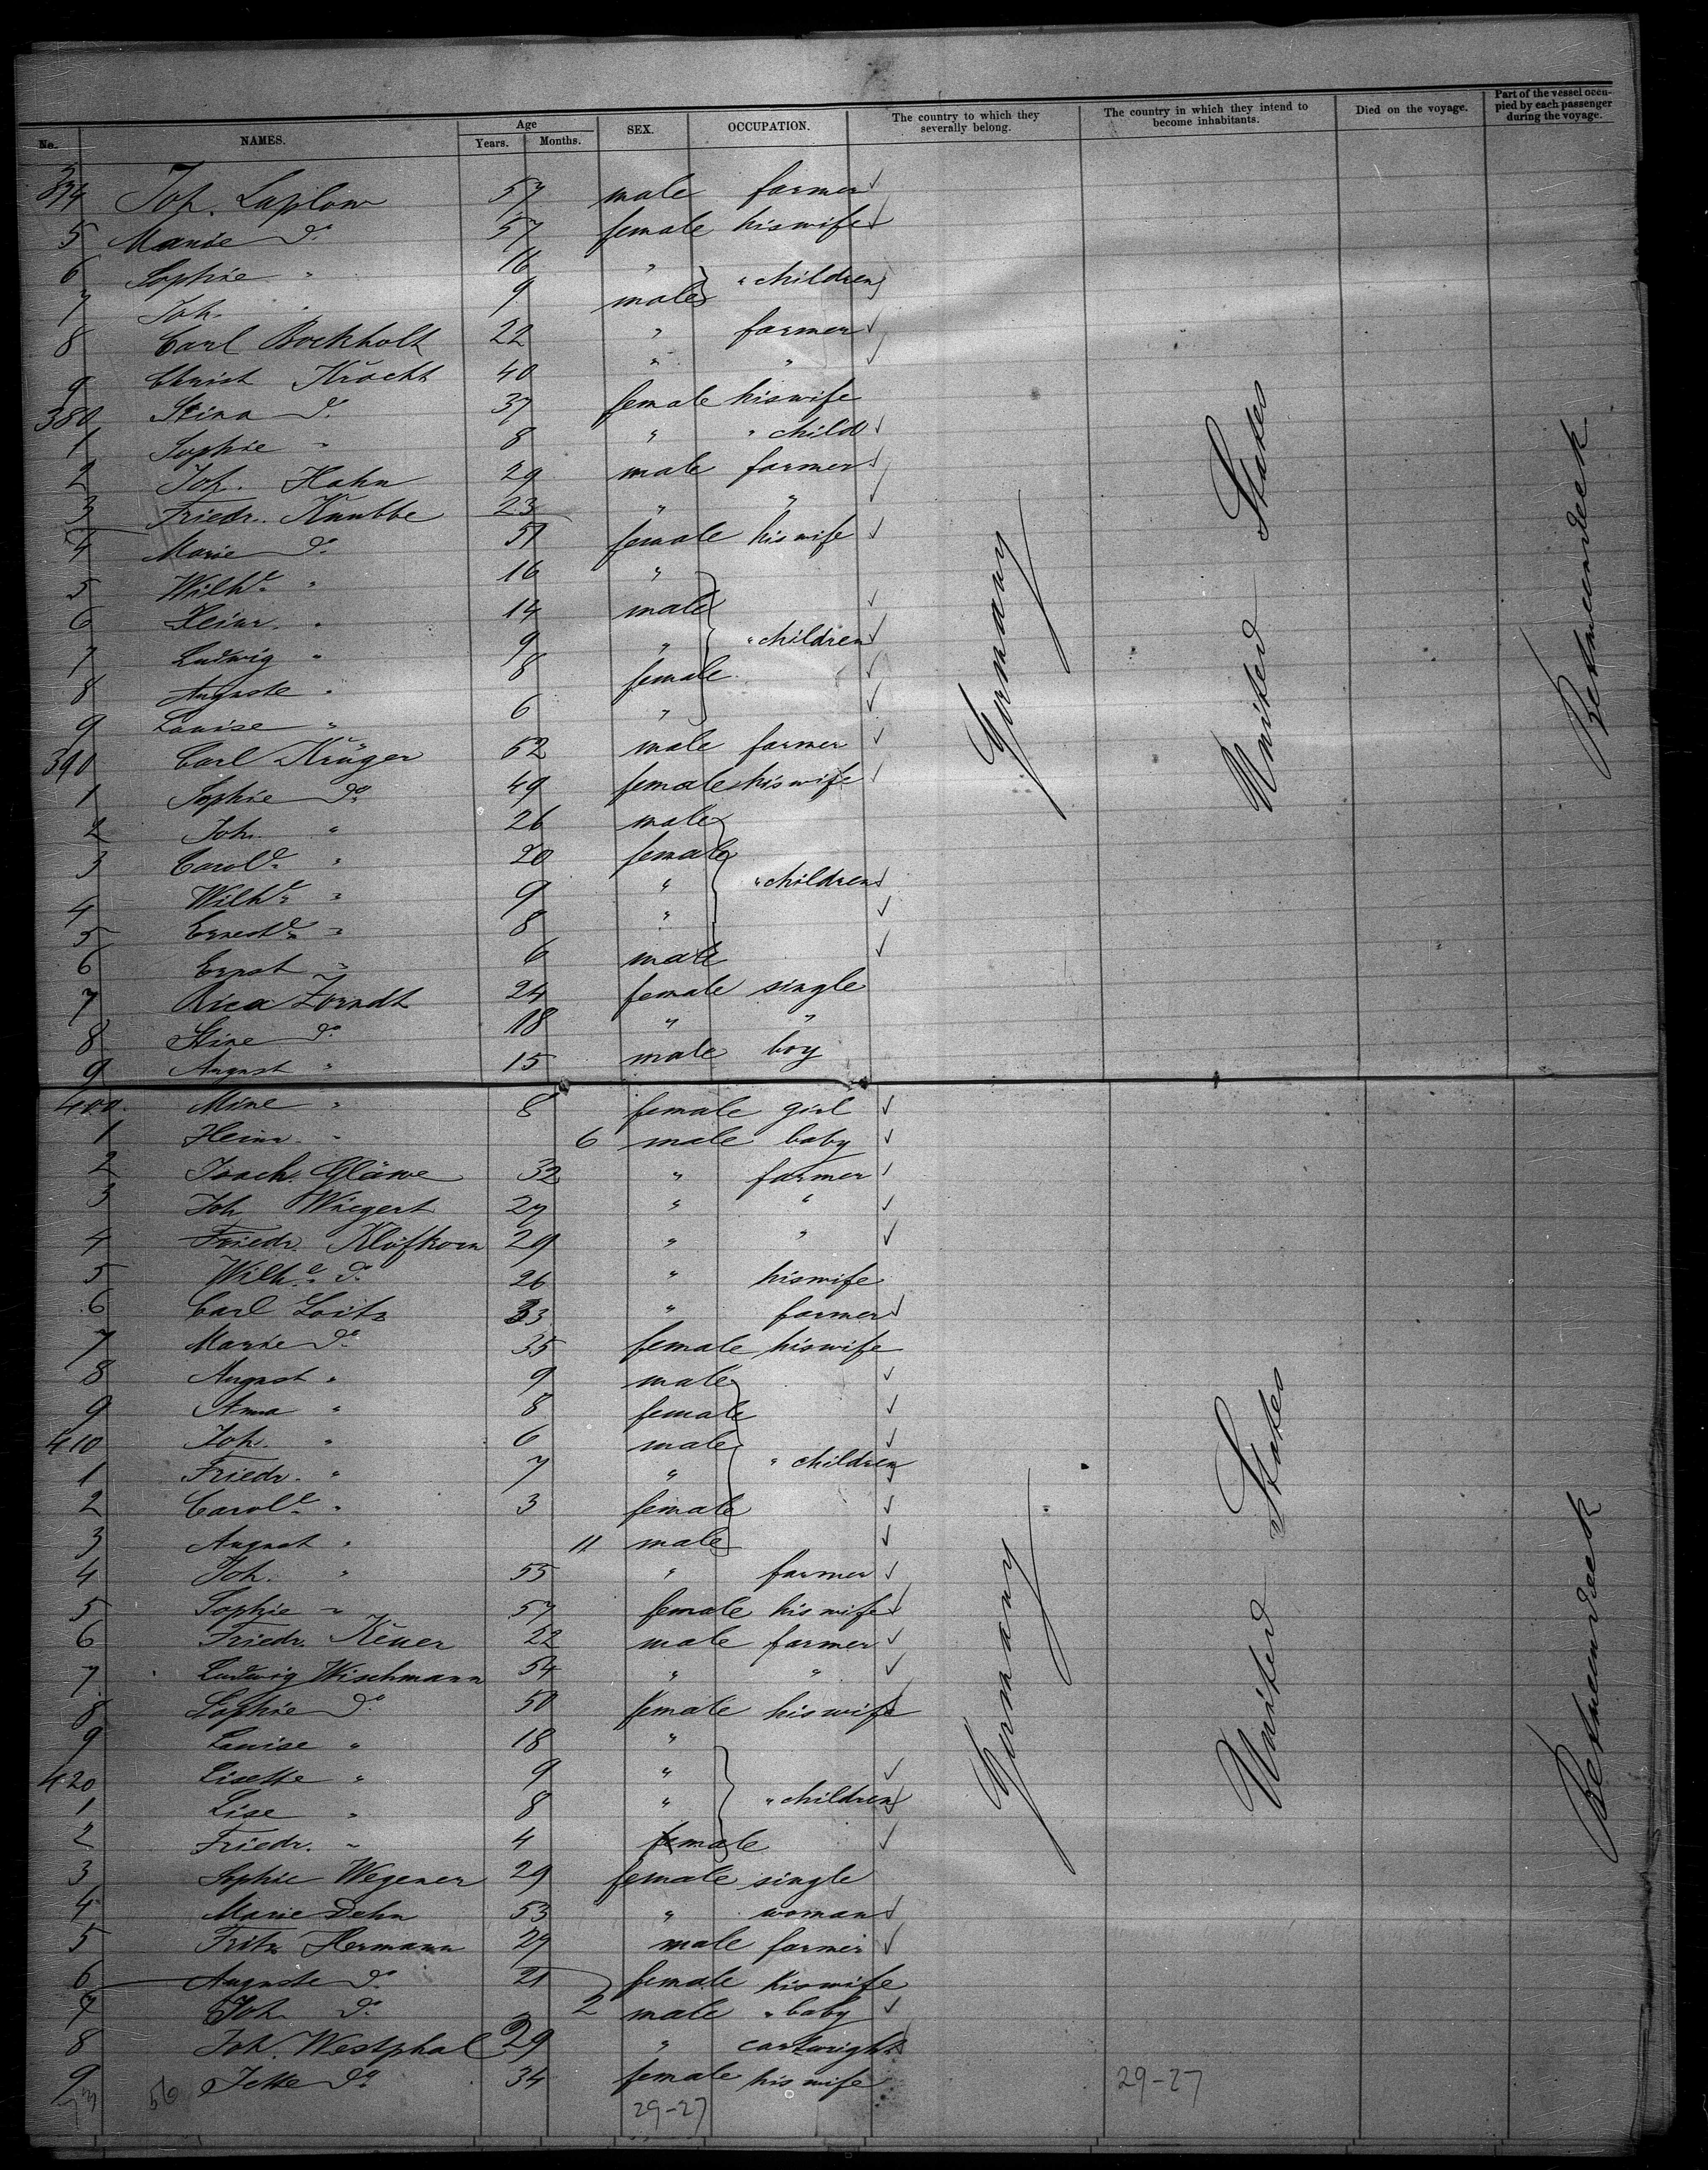 No. NAMES. Age Years. Months. SEX. OCCUPATION. The country to which they severally belong. The country in which they intend to become inhabitants. Died on the voyage. Part of the vessel occupied by each passenger during the voyage.
374 Joh. Laplow 57 male farmer
5 Marie do. 57 female his wife
6 Sophie " 16 "
7 Joh. " 9 male " children
8 Carl Bockholt 22 " farmer
9 Christ Kracht 40 " "
380 Stina do. 37 female his wife
1 Sophie " 8 " " child
2 Joh. Hahn 29 male farmer
3 Friedr. Knubbe 23 " "
4 Marie do. 51 female his wife
5 Wilhe. " 16 "
6 Heinr. " 14 male
7 Ludwig " 9 " " children
8 Auguste " 8 female
9 Louise " 6 "
390 Carl Krüger 52 male farmer
1 Sophie do. 49 female his wife
2 Joh. " 26 male
3 Carole. " 20 female
4 Wilhe. " 9 " " children
5 Erneste. " 8 "
6 Ernst " 6 male
7 Rica Zorndt 24 female single
8 Stine do. 18 " "
9 August " 15 male boy
400 Mine " 8 female girl
1 Heinr. " 6 male baby
2 Joach. Gläwe 32 " farmer
3 Joh Wiegert 27 " "
4 Friedr. Klöfkorn 29 " "
5 Wilhe. do. 26 " his wife
6 Carl Loitz 33 " farmer
7 Marie do. 35 female his wife
8 August " 9 male
9 Anna " 8 female
410 Joh. " 6 male
1 Friedr. " 7 " " children
2 Carole. " 3 female
3 August " 11 male
4 Joh. " 55 " farmer
5 Sophie " 57 female his wife
6 Friedr. Keuer 22 male farmer
7 Ludwig Wischmann 54 " "
8 Sophie do. 50 female his wife
9 Louise " 18 "
420 Lisette " 9 "
1 Lise " 8 " " children
2 Friedr. " 4 male
3 Sophie Wegener 29 female single
4 Marie Dehn 53 " woman
5 Fritz Hermann 29 male farmer
6 Auguste do. 21 female his wife
7 Joh. do. 2 male " baby
8 Joh. Westphal 29 " cartwright
9 Jette do. 34 female his wife
Germany
United States
Betweendeck
Germany
United States
Betweendeck
56
29-27
29-27